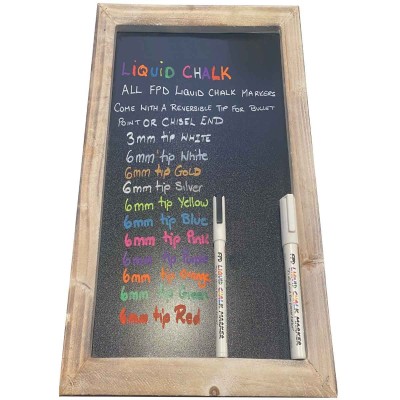 LIQUID CHALK
ALL FPD LIQUID CHALK MARKERS
COME WITH A REVERSIBLE TIP FOR BULLET
POINT OR CHISEL END
3mm tip WHITE
6mm tip White
6mm tip GOLD
6mm tip Silver
6mm tip Yellow
6mm tip Blue
6mm tip Pink
6mm tip Purple
6mm tip Orange
6mm tip Green
6mm tip Red
FPD LIQUID CHALK MARKER
FPD LIQUID CHALK MARKER